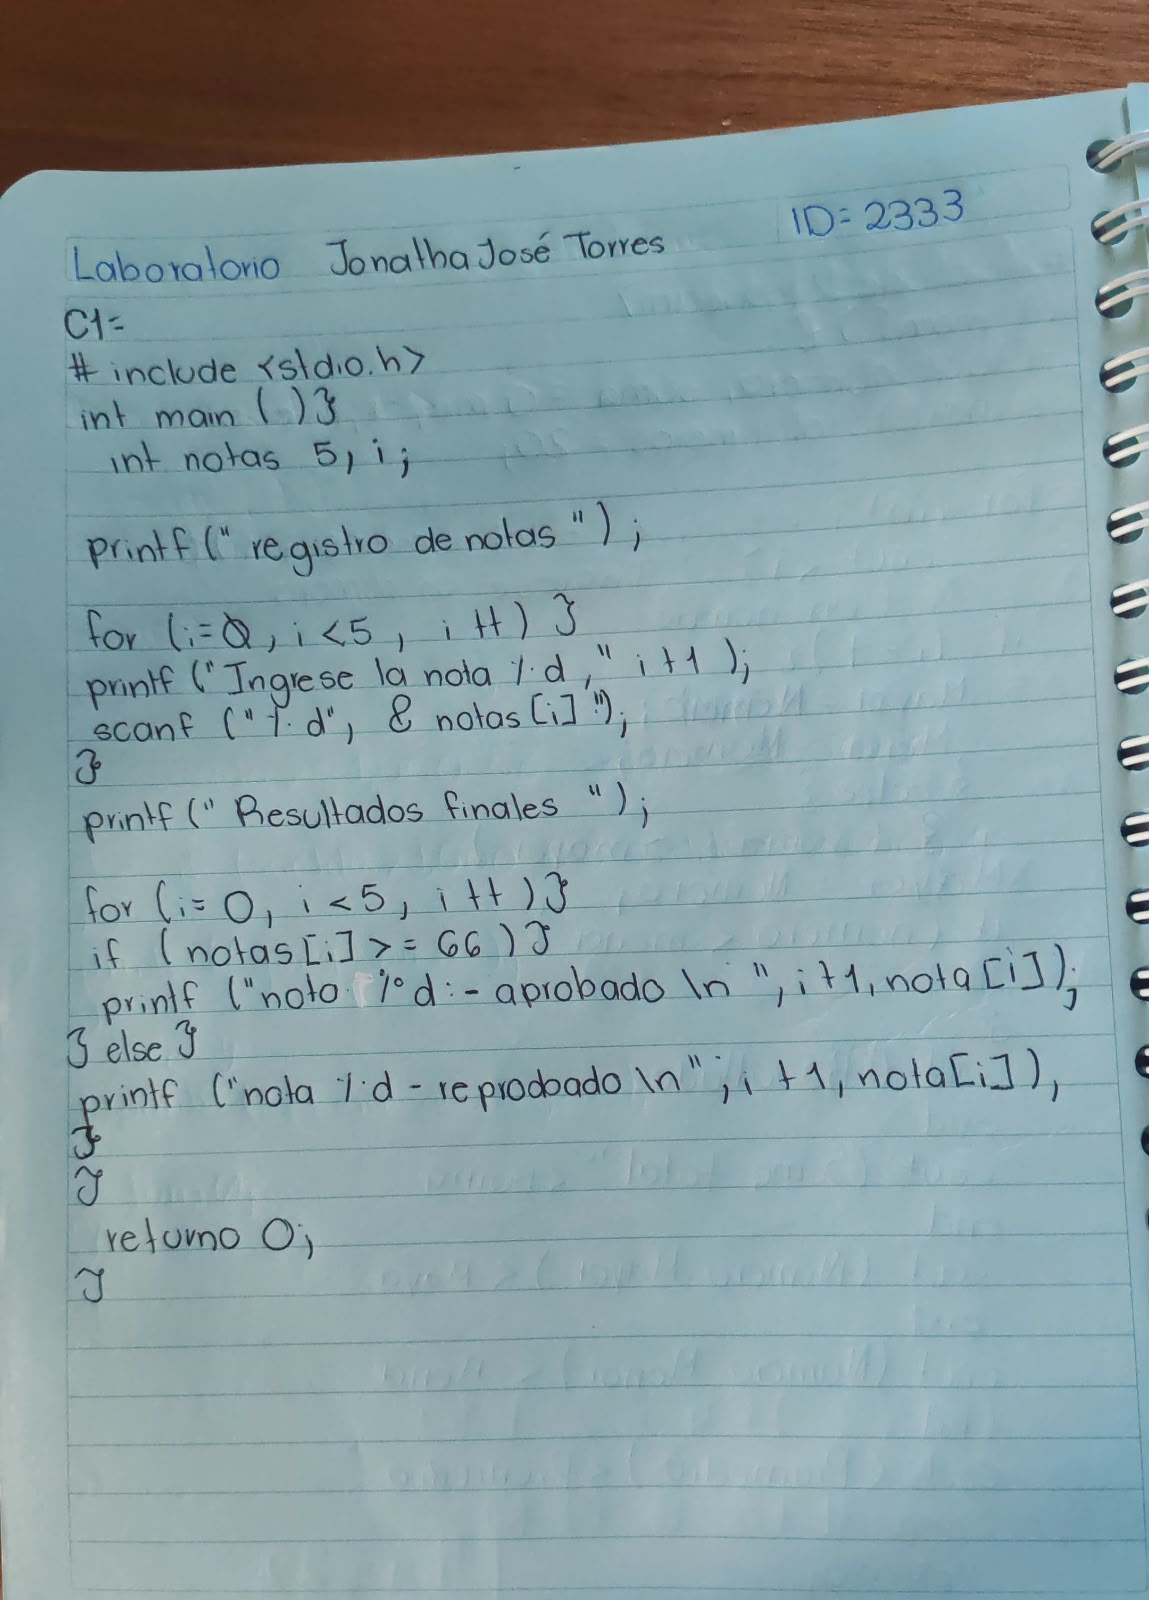 Laboratorio Jonatha José Torres ID= 2333
C1=
# include <stdio.h>
int main ( ) }
int notas 5, i;
printf (" registro de notas " ) ;
for (i=0, i <5 , i ++) }
printf ("Ingrese la nota %d ," i +1 );
scanf ("%d", & notas [i] ");
}
printf (" Resultados finales " ) ;
for (i= 0, i <5 , i ++ ) }
if ( notas [i] >= 66 ) }
printf ("noto %d :- aprobado \n ", i +1, nota [i] );
} else }
printf ("nota %d - reprodbado \n" ; i +1, nota [i] ),
}
}
returno 0;
}